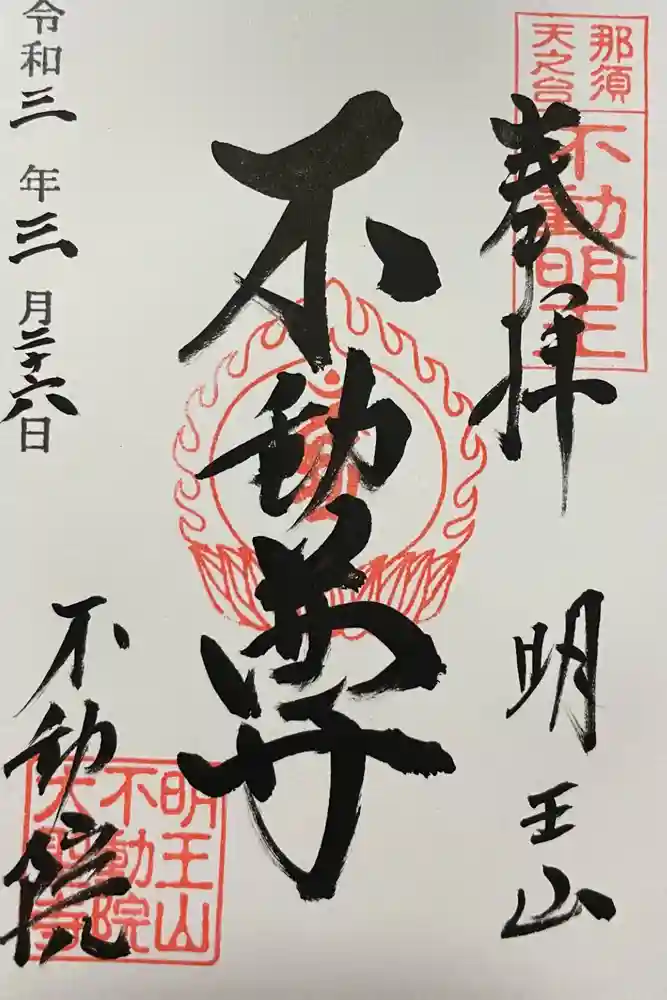 那須
天之台
不動明王
奉拝
明王山
不動尊
令和三年三月二十六日
不動院
明王山
不動院